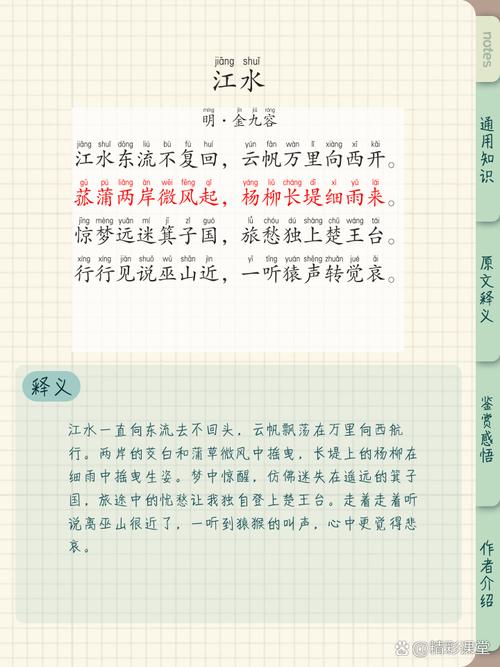 notes
jiāng shuǐ
江水
míng jīn jiǔ róng
明·金九容
jiāng shuǐ dōng liú bù fù huí yún fān wàn lǐ xiàng xī kāi
江水东流不复回，云帆万里向西开。
gū pú liǎng àn wēi fēng qǐ yáng liǔ cháng dī xì yǔ lái
菰蒲两岸微风起，杨柳长堤细雨来。
jīng mèng yuǎn mí jī zǐ guó lǚ chóu dú shàng chǔ wáng tái
惊梦远迷箕子国，旅愁独上楚王台。
xíng xíng jiàn shuō wū shān jìn yī tīng yuán shēng zhuǎn jué āi
行行见说巫山近，一听猿声转觉哀。
释义
江水一直向东流去不回头，云帆飘荡在万里向西航
行。两岸的茭白和蒲草微风中摇曳，长堤上的杨柳在
细雨中摇曳生姿。梦中惊醒，仿佛迷失在遥远的箕子
国，旅途中的忧愁让我独自登上楚王台。走着走着听
说离巫山很近了，一听到猿猴的叫声，心中更觉得悲
哀。
通用知识
原文释义
鉴赏感悟
作者介绍
@精彩课堂